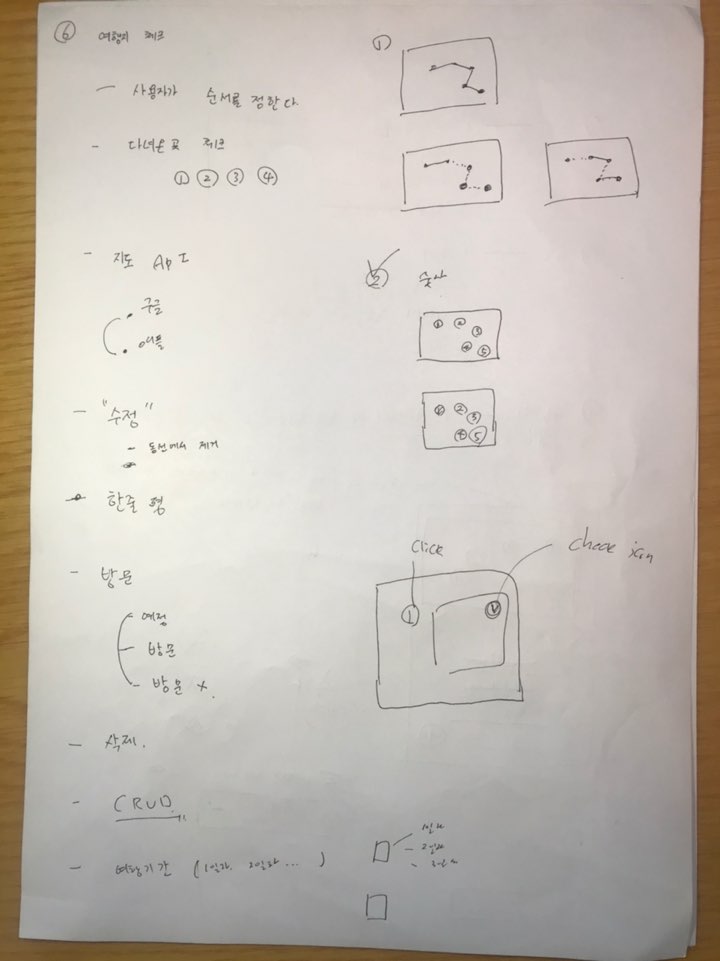 ⑥ 여행지 체크
- 사용자가 순서를 정한다.
- 다녀온 곳 체크
① ② ③ ④
- 지도 API
• 구글
• 애플
- "수정"
- 동선에서 제거
- 한줄 평
- 방문
예정
방문
방문 X.
- 삭제.
- CRUD.
- 여행기간 (1일차, 2일차 ... )
①
② 숫자
① ② ③ ④ ⑤
① ② ③ ④ ⑤
click
check icon
①
V
1일차
- 2일차